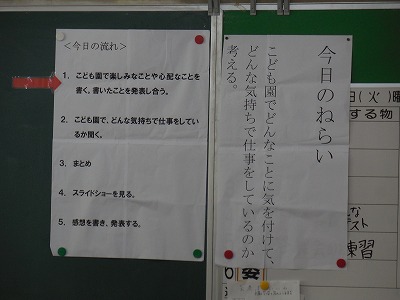 <今日の流れ>
1. こども園で楽しみなことや心配なことを
書く。書いたことを発表し合う。
2. こども園で、どんな気持ちで仕事をしてい
るか聞く。
3. まとめ
4. スライドショーを見る。
5. 感想を書き、発表する。
今日のねらい
こども園でどんなことに気を付けて、
どんな気持ちで仕事をしているのか
考える。
日(火)曜
する物
練習